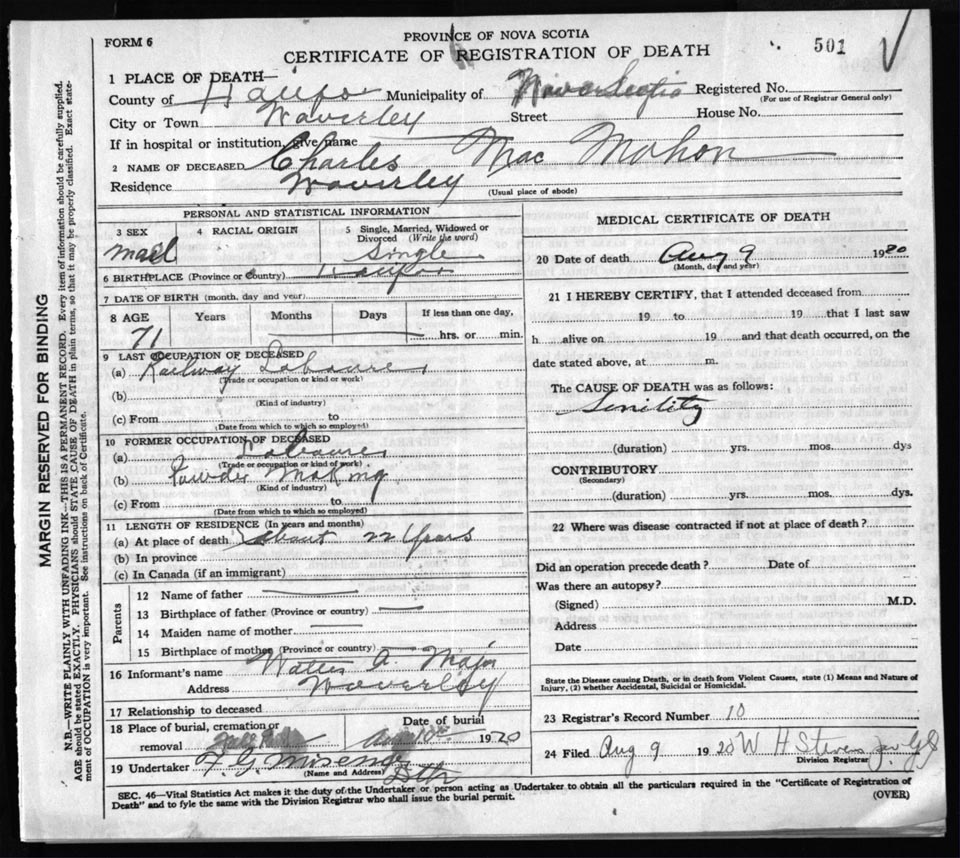 FORM 6
PROVINCE OF NOVA SCOTIA
CERTIFICATE OF REGISTRATION OF DEATH
501
1 PLACE OF DEATH—
County of Halifax Municipality of Nova Scotia Registered No.
(For use of Registrar General only)
City or Town Waverley Street House No.
If in hospital or institution, give name
2 NAME OF DECEASED Charles Mac Mahon
Residence Waverley
(Usual place of abode)
PERSONAL AND STATISTICAL INFORMATION
3 SEX 4 RACIAL ORIGIN 5 Single, Married, Widowed or Divorced (Write the word)
mael Single
6 BIRTHPLACE (Province or Country) Halifax
7 DATE OF BIRTH (month, day and year)
8 AGE Years Months Days If less than one day,
71 hrs. or min.
9 LAST OCCUPATION OF DECEASED
(a) Railway Labourer
(Trade or occupation or kind or work)
(b)
(Kind of industry)
(c) From to
(Date from which to which so employed)
10 FORMER OCCUPATION OF DECEASED
(a) Labourer
(Trade or occupation or kind of work)
(b) Powder Making
(Kind of industry)
(c) From to
(Date from which to which so employed)
11 LENGTH OF RESIDENCE (In years and months)
(a) At place of death about 22 Years
(b) In province
(c) In Canada (if an immigrant)
Parents
12 Name of father
13 Birthplace of father (Province or country)
14 Maiden name of mother
15 Birthplace of mother (Province or country)
16 Informant's name Walter A. Major
Address Waverley
17 Relationship to deceased
18 Place of burial, cremation or removal Date of burial
Aug 10th 1920
19 Undertaker
(Name and Address)
MEDICAL CERTIFICATE OF DEATH
20 Date of death Aug 9 1920
(Month, day and year)
21 I HEREBY CERTIFY, that I attended deceased from
19 to 19 that I last saw
h alive on 19 and that death occurred, on the
date stated above, at m.
The CAUSE OF DEATH was as follows:
Senility
(duration) yrs. mos. dys
CONTRIBUTORY
(Secondary)
(duration) yrs. mos. dys.
22 Where was disease contracted if not at place of death?
Did an operation precede death? Date of
Was there an autopsy?
(Signed) M.D.
Address
Date
State the Disease causing Death, or in death from Violent Causes, state (1) Means and Nature of
Injury, (2) whether Accidental, Suicidal or Homicidal.
23 Registrar's Record Number 10
24 Filed Aug 9 1920 W H Stevens
Division Registrar
SEC. 46—Vital Statistics Act makes it the duty of the Undertaker or person acting as Undertaker to obtain all the particulars required in the "Certificate of Registration of
Death" and to fyle the same with the Division Registrar who shall issue the burial permit.
(OVER)
MARGIN RESERVED FOR BINDING
N.B.—WRITE PLAINLY WITH UNFADING INK—THIS IS A PERMANENT RECORD. Every item of information should be carefully supplied.
AGE should be stated EXACTLY. PHYSICIANS should STATE CAUSE OF DEATH in plain terms, so that it may be properly classified. Exact state-
ment of OCCUPATION is very important. See instructions on back of Certificate.